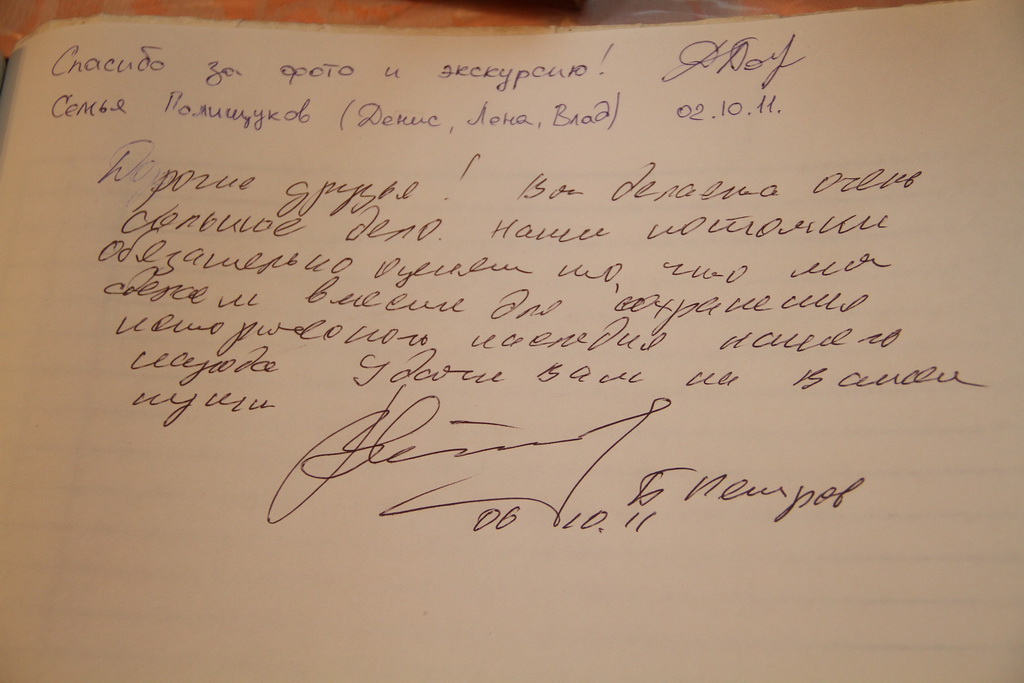 Спасибо за фото и экскурсию!
Семья Полищуков (Денис, Лена, Влад) 02.10.11.
Дорогие друзья! Вы делаете очень
большое дело. Наши потомки
обязательно оценят то, что мы
вместе для сохранения
исторического наследия нашего
народа Удачи Вам на Вашем
пути
Б Петров
06 10.11